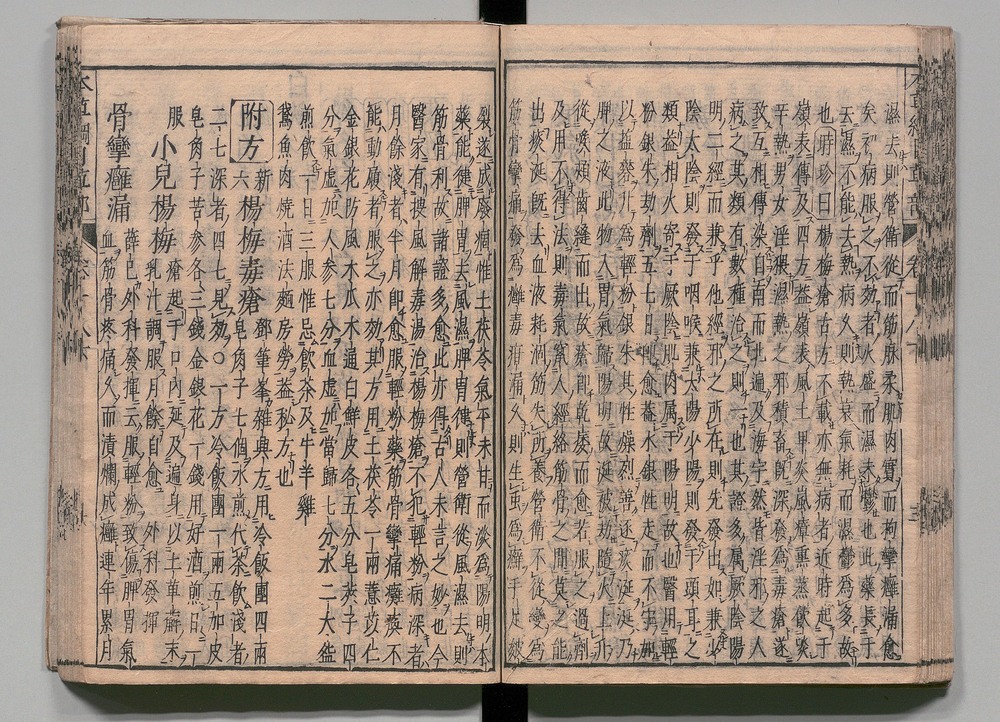 濕去則營衛從而筋脉柔肌肉實而拘攣癰漏愈
矣初病服之不効者火盛而濕未鬱也此藥長于
去濕不能去熱病久則熱衰氣耗而濕鬱爲多故
也時珍曰楊梅瘡古方不載亦無病者近時起于
嶺表傳及四方葢嶺表風土卑炎嵐瘴熏蒸飲啖
辛熱男女淫猥濕熱之邪積畜既深發爲毒瘡遂
致互相傳染自南而北遍及海宇然皆淫邪之人
病之其類有數種治之則一也其證多属厥陰陽
明二經而兼乎他經邪之所在則先發出如兼少
陰太陰則發于咽喉兼太陽少陽則發于頭耳之
類葢相火寄于厥陰肌肉属于陽明故也醫用輕
粉銀朱劫劑五七日即愈葢水銀性走而不守加
以鹽礬升爲輕粉銀朱其性燥烈善逐痰涎涎乃
脾之液此物入胃氣歸陽明故涎被劫隨火上升
從喉頰齒縫而出故瘡即乾痿而愈若服之過劑
及用不得法則毒氣竄入經絡筋骨之間莫之能
出痰涎既去血液耗涸筋失所養營衛不從變爲
筋骨攣痛發爲癰毒疳漏久則生虫爲癬手足皴
裂遂成廢痼惟土茯苓氣平味甘而淡爲陽明本
藥能健脾胃去風濕脾胃健則營衛從風濕去則
筋骨利故諸證多愈此亦得古人未言之妙也今
醫家有搜風解毒湯治楊梅瘡不犯輕粉病深者
月餘淺者半月即愈服輕粉藥筋骨攣痛癱瘓不
能動履者服之亦効其方用土茯苓一兩薏苡仁
金銀花防風木瓜木通白鮮皮各五分皂莢子四
分氣虚加人參七分血虚加當歸七分水二大盌
煎飲一日三服惟忌飲茶及牛羊雞
鵞魚肉燒酒法麪房勞葢秘方也
附方新六楊梅毒瘡鄧筆峯雜興方用冷飯團四兩
皂肉子七個水煎代茶飲淺者
二七深者四七見効〇一方冷飯團一兩五加皮
皂肉子苦參各三錢金銀花一錢用好酒煎日一
服小兒楊梅瘡起于口内延及遍身以土萆薢末
乳汁調服月餘自愈外科發揮
骨攣癰漏薛已外科發揮云服輕粉致傷脾胃氣
血筋骨疼痛久而潰爛成癰連年累月